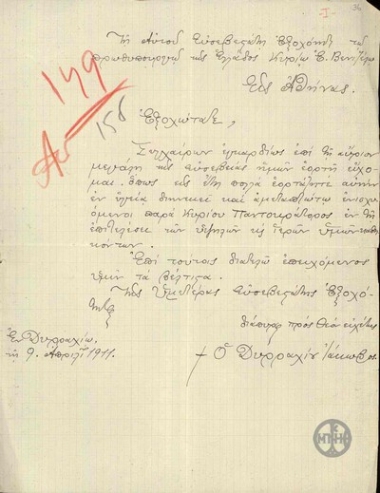 - I -
Τῇ Αὐτοῦ Εὐσεβεστάτῃ Ἐξοχότητι τῷ
πρωθυπουργῷ τῆς Ἑλλάδος Κυρίῳ Ἐ. Βενιζέλῳ
Εἰς Ἀθήνας.
149
156
Ἐξοχώτατε,
Συγχαίρων ἐγκαρδίως ἐπὶ τῇ αὔριον
μεγάλῃ τῆς εὐσεβείας ἡμῶν ἑορτῇ εὔχο-
μαι ὅπως εἰς ἔτη πολλὰ ἑορτάζητε αὐτὴν
ἐν ὑγιείᾳ διηνεκεῖ καὶ ἀμεταπτώτῳ ἐνισχυ-
όμενοι παρὰ Κυρίου Παντοκράτορος ἐν τῇ
ἐπιτελέσει τῶν ὑψηλῶν καὶ ἱερῶν ὑμῶν καθη-
κόντων.
Ἐπὶ τούτοις διατελῶ ἐπευχόμενος
ὑμῖν τὰ βέλτιστα.
Τῆς Ὑμετέρας Εὐσεβεστάτης Ἐξοχό-
τητος
διάπυρος πρὸς Θεὸν εὐχέτης
Ἐν Δυρραχίῳ,
τῇ 9 Ἀπριλίου 1911.
† Ὁ Δυρραχίου Ἰάκωβος